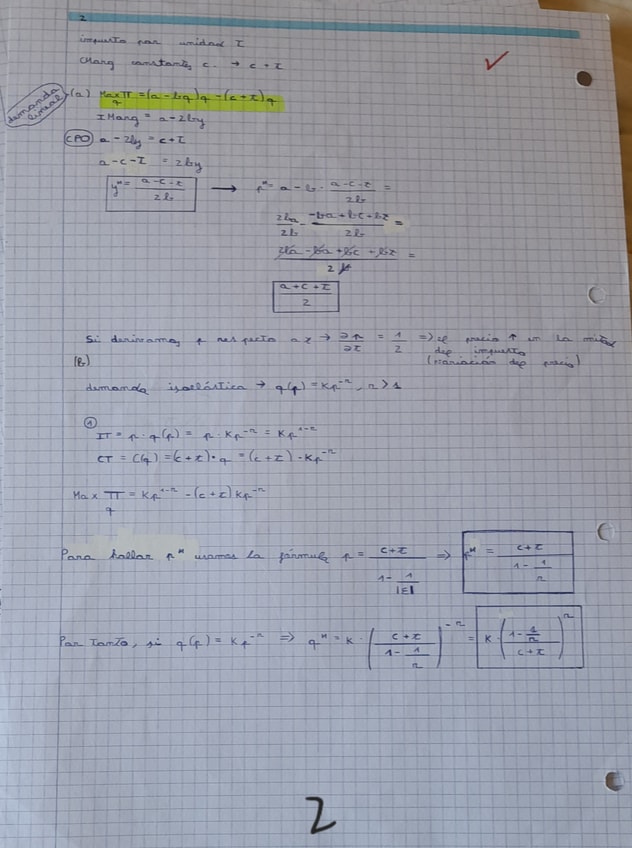 2
impuesto por unidad τ
CMarg constante, c. → c + τ
demanda lineal
(a) Max π = (a - bq)q - (c + τ)q
q
IMarg = a - 2by
CPO a - 2by = c + τ
a - c - τ = 2by
y^M = (a - c - τ)/(2b) → p^M = a - b · (a - c - τ)/(2b) =
2ba/2b (-ba + bc + bτ)/(2b) =
(2ba - ba + bc + bτ)/(2b) =
(a + c + τ)/2
Si derivamos p respecto a τ → ∂p/∂τ = 1/2 => el precio ↑ en la mitad
del impuesto
(variación del precio)
(b)
demanda isoelástica → q(p) = Kp^-n, n > 1
①
IT = p · q(p) = p · Kp^-n = Kp^1-n
CT = C(q) = (c + τ) · q = (c + τ) · Kp^-n
Max π = Kp^1-n - (c + τ)Kp^-n
q
Para hallar p^M usamos la fórmula p = (c + τ)/(1 - 1/|E|) => p^M = (c + τ)/(1 - 1/n)
Por tanto, si q(p) = Kp^-n => q^M = K · ((c + τ)/(1 - 1/n))^-n = K · ((1 - 1/n)/(c + τ))^n
2